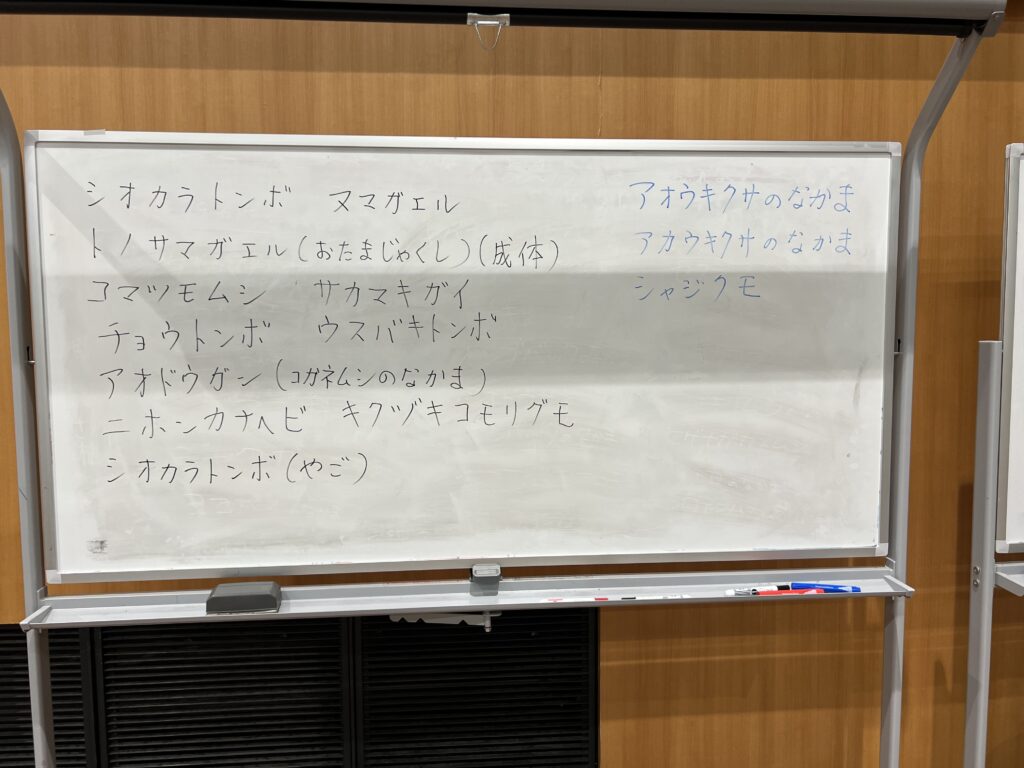 シオカラトンボ ヌマガエル
トノサマガエル(おたまじゃくし)(成体)
コマツモムシ サカマキガイ
チョウトンボ ウスバキトンボ
アオドウガン(コガネムシのなかま)
ニホンカナヘビ キクヅキコモリグモ
シオカラトンボ(やご)
アオウキクサのなかま
アカウキクサのなかま
シャジクモ